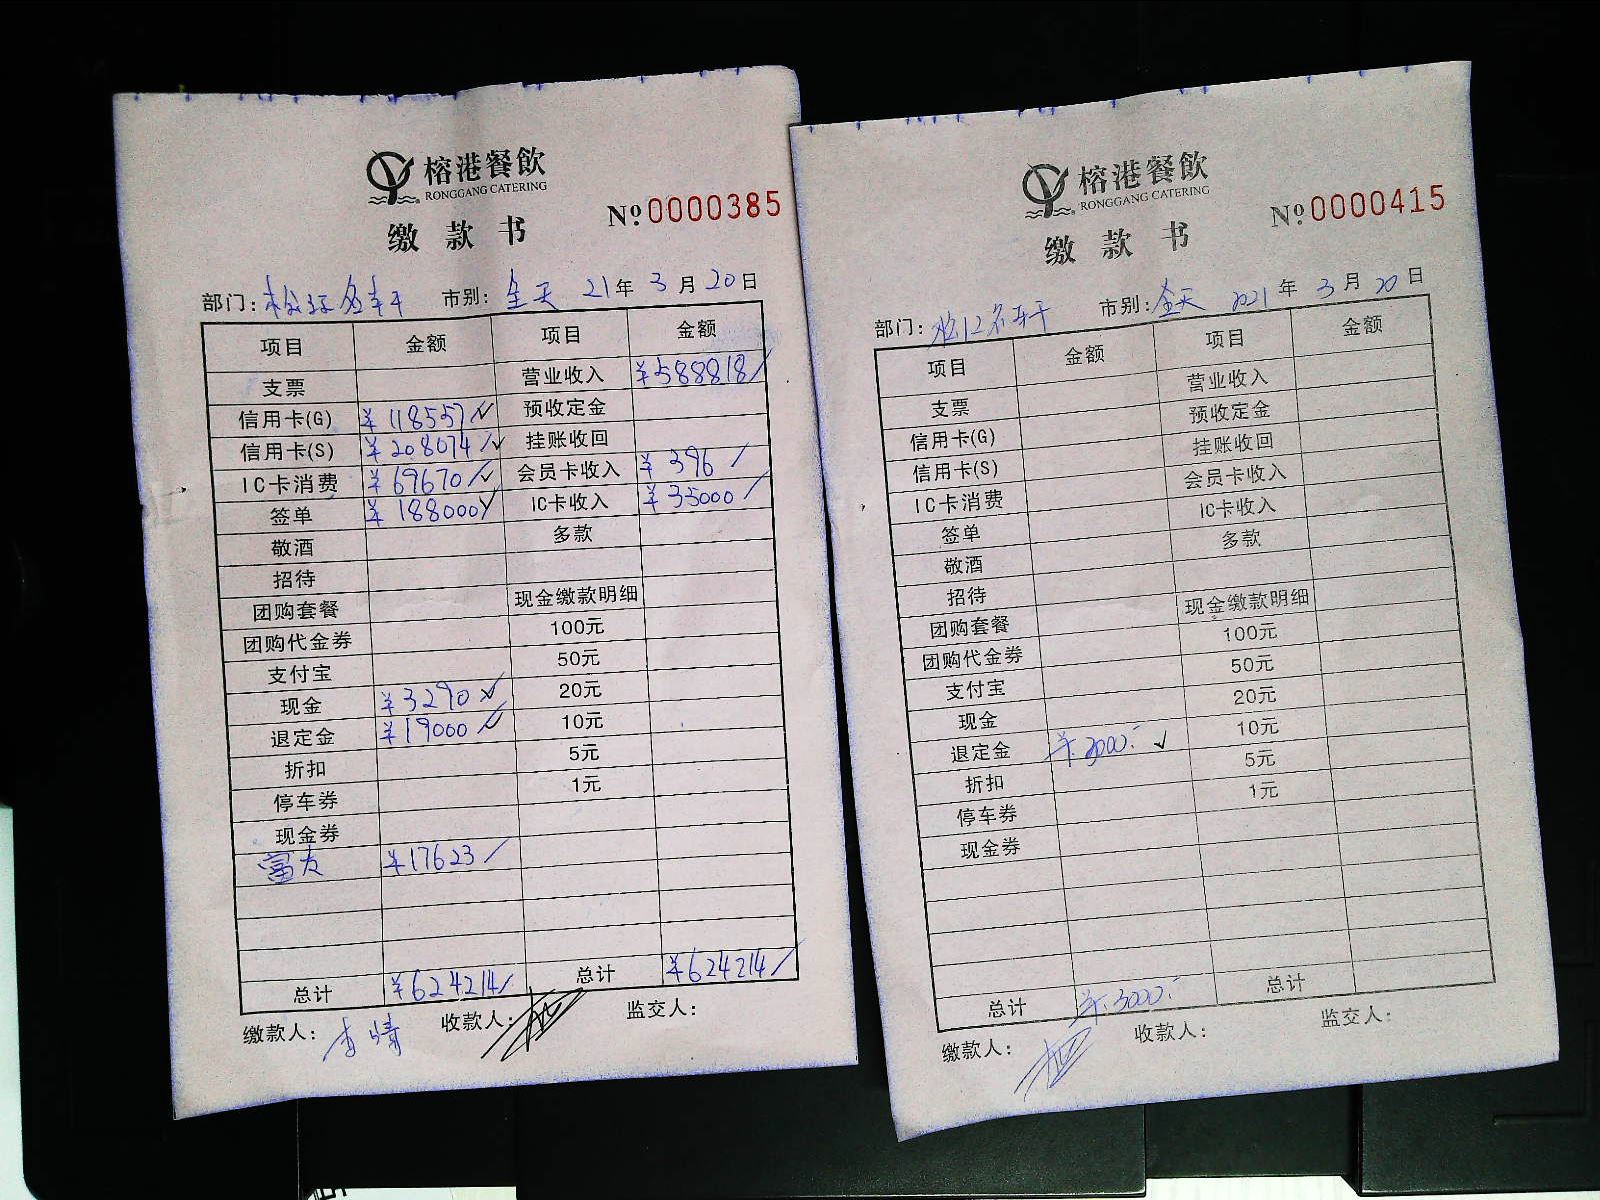 榕港餐飲
RONGGANG CATERING
缴款书
№0000385
部门： 市别：全天 21年3月20日
项目 金额 项目 金额
支票 营业收入 ¥588818
信用卡(G) ¥118557 预收定金
信用卡(S) ¥208074 挂账收回
IC卡消费 ¥69670 会员卡收入 ¥396
签单 ¥188000 IC卡收入 ¥35000
敬酒 多款
招待
团购套餐 现金缴款明细
团购代金券 100元
支付宝 50元
现金 ¥3290 20元
退定金 ¥19000 10元
折扣 5元
停车券 1元
现金券
富友 ¥17623
总计 ¥624214 总计 ¥624214
缴款人： 收款人： 监交人：
榕港餐飲
RONGGANG CATERING
缴款书
№0000415
部门： 市别：全天 2021年3月20日
项目 金额 项目 金额
支票 营业收入
信用卡(G) 预收定金
信用卡(S) 挂账收回
IC卡消费 会员卡收入
签单 IC卡收入
敬酒 多款
招待
团购套餐 现金缴款明细
团购代金券 100元
支付宝 50元
现金 20元
退定金 ¥3000 10元
折扣 5元
停车券 1元
现金券
总计 ¥3000 总计
缴款人： 收款人： 监交人：